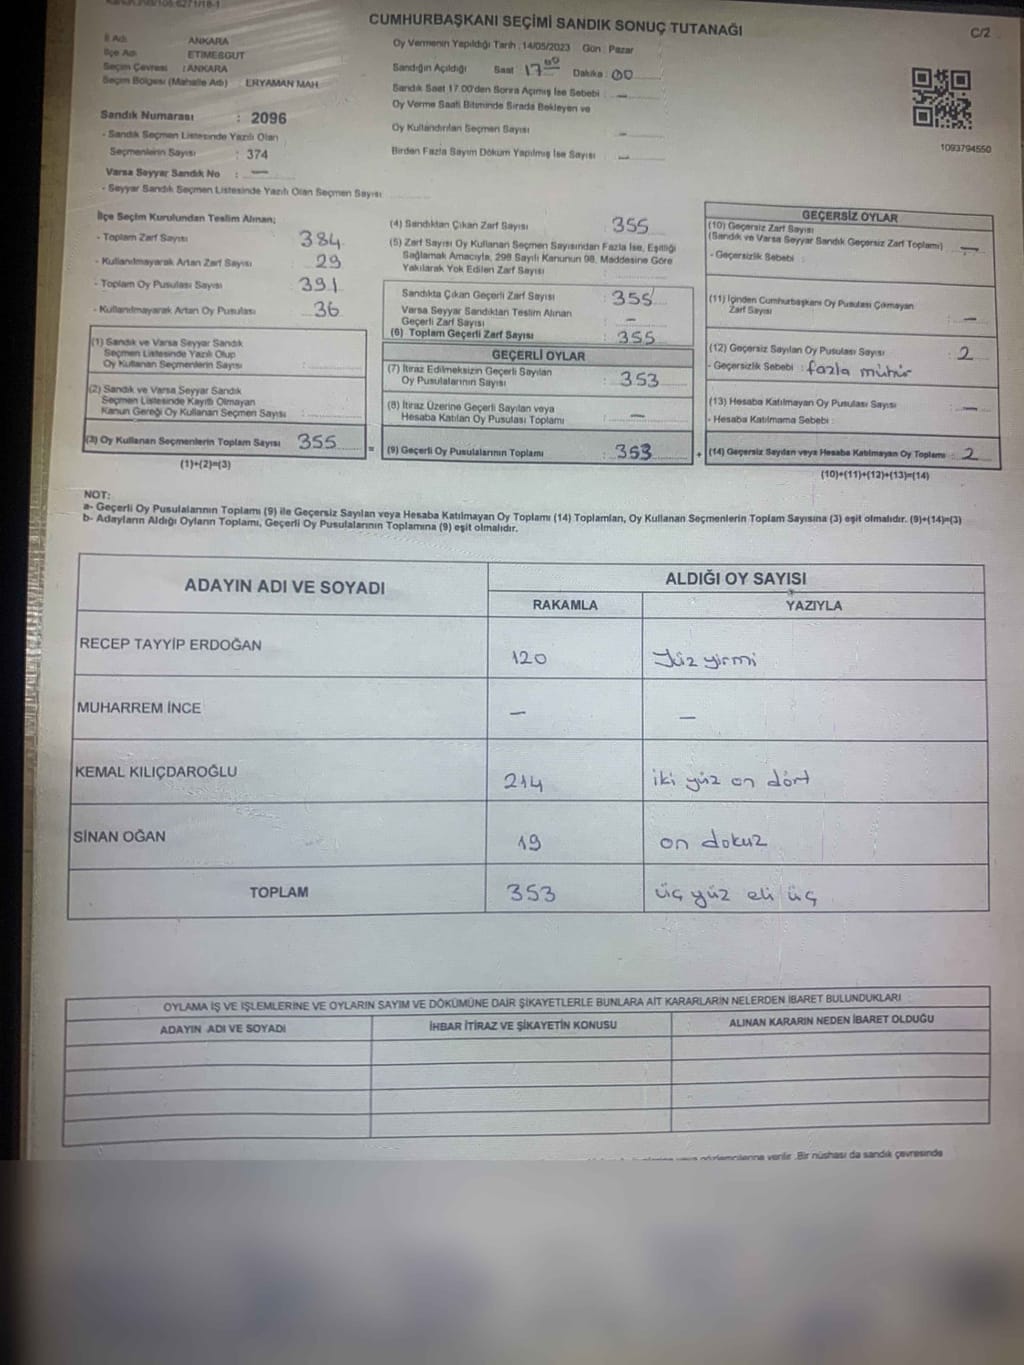 CUMHURBAŞKANI SEÇİMİ SANDIK SONUÇ TUTANAĞI
C/2
İl Adı ANKARA
İlçe Adı ETİMESGUT
Seçim Çevresi : ANKARA
Seçim Bölgesi (Mahalle Adı) : ERYAMAN MAH.
Oy Vermenin Yapıldığı Tarih : 14/05/2023 Gün : Pazar
Sandığın Açıldığı Saat 17 00 Dakika : 00
Sandık Saat 17.00'den Sonra Açmış İse Sebebi : —
Oy Verme Saati Bitiminde Sırada Bekleyen ve
Oy Kullandırılan Seçmen Sayısı : —
Birden Fazla Sayım Döküm Yapılmış İse Sayısı : —
1093794550
Sandık Numarası : 2096
- Sandık Seçmen Listesinde Yazılı Olan
Seçmenlerin Sayısı : 374
Varsa Seyyar Sandık No : —
- Seyyar Sandık Seçmen Listesinde Yazılı Olan Seçmen Sayısı
İlçe Seçim Kurulundan Teslim Alınan;
- Toplam Zarf Sayısı : 384
- Kullanılmayarak Artan Zarf Sayısı : 29
- Toplam Oy Pusulası Sayısı : 391
- Kullanılmayarak Artan Oy Pusulası : 36
(1) Sandık ve Varsa Seyyar Sandık
Seçmen Listesinde Yazılı Olup
Oy Kullanan Seçmenlerin Sayısı :
(2) Sandık ve Varsa Seyyar Sandık
Seçmen Listesinde Kayıtlı Olmayan
Kanun Gereği Oy Kullanan Seçmen Sayısı :
(3) Oy Kullanan Seçmenlerin Toplam Sayısı 355
(1)+(2)=(3)
(4) Sandıktan Çıkan Zarf Sayısı : 355
(5) Zarf Sayısı Oy Kullanan Seçmen Sayısından Fazla İse, Eşitliği
Sağlamak Amacıyla, 298 Sayılı Kanunun 98. Maddesine Göre
Yakılarak Yok Edilen Zarf Sayısı :
Sandıkta Çıkan Geçerli Zarf Sayısı : 355
Varsa Seyyar Sandıktan Teslim Alınan
Geçerli Zarf Sayısı : —
(6) Toplam Geçerli Zarf Sayısı : 355
GEÇERLİ OYLAR
(7) İtiraz Edilmeksizin Geçerli Sayılan
Oy Pusulalarının Sayısı : 353
(8) İtiraz Üzerine Geçerli Sayılan veya
Hesaba Katılan Oy Pusulası Toplamı : —
= (9) Geçerli Oy Pusulalarının Toplamı : 353
GEÇERSİZ OYLAR
(10) Geçersiz Zarf Sayısı
(Sandık ve Varsa Seyyar Sandık Geçersiz Zarf Toplamı) : —
- Geçersizlik Sebebi :
(11) İçinden Cumhurbaşkanı Oy Pusulası Çıkmayan
Zarf Sayısı : —
(12) Geçersiz Sayılan Oy Pusulası Sayısı : 2
- Geçersizlik Sebebi : fazla mühür
(13) Hesaba Katılmayan Oy Pusulası Sayısı : —
- Hesaba Katılmama Sebebi :
+ (14) Geçersiz Sayılan veya Hesaba Katılmayan Oy Toplamı : 2
(10)+(11)+(12)+(13)=(14)
NOT:
a- Geçerli Oy Pusulalarının Toplamı (9) ile Geçersiz Sayılan veya Hesaba Katılmayan Oy Toplamı (14) Toplamları, Oy Kullanan Seçmenlerin Toplam Sayısına (3) eşit olmalıdır. (9)+(14)=(3)
b- Adayların Aldığı Oyların Toplamı, Geçerli Oy Pusulalarının Toplamına (9) eşit olmalıdır.
ADAYIN ADI VE SOYADI
ALDIĞI OY SAYISI
RAKAMLA YAZIYLA
RECEP TAYYİP ERDOĞAN 120 Yüz yirmi
MUHARREM İNCE — —
KEMAL KILIÇDAROĞLU 214 iki yüz on dört
SİNAN OĞAN 19 on dokuz
TOPLAM 353 üç yüz eli üç
OYLAMA İŞ VE İŞLEMLERİNE VE OYLARIN SAYIM VE DÖKÜMÜNE DAİR ŞİKAYETLERLE BUNLARA AİT KARARLARIN NELERDEN İBARET BULUNDUKLARI
ADAYIN ADI VE SOYADI İHBAR İTİRAZ VE ŞİKAYETİN KONUSU ALINAN KARARIN NEDEN İBARET OLDUĞU
verilir .Bir nüshası da sandık çevresinde